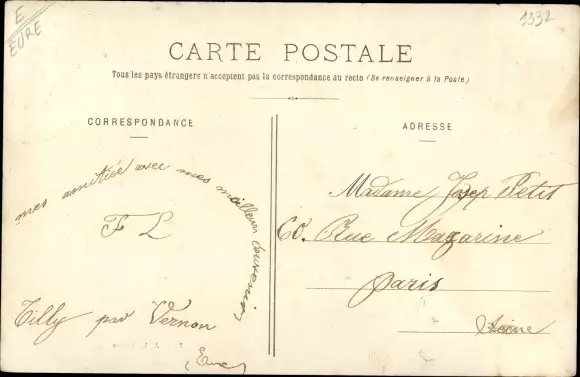 E
EURE
1332
CARTE POSTALE
Tous les pays étrangers n'acceptent pas la correspondance au recto (Se renseigner à la Poste)
CORRESPONDANCE
mes amitiée avec mes meilleur souvenir
F L
Tilly par Vernon
(Eure)
ADRESSE
Madame Josep Petit
60. Rue Mazarine
Paris
Seine